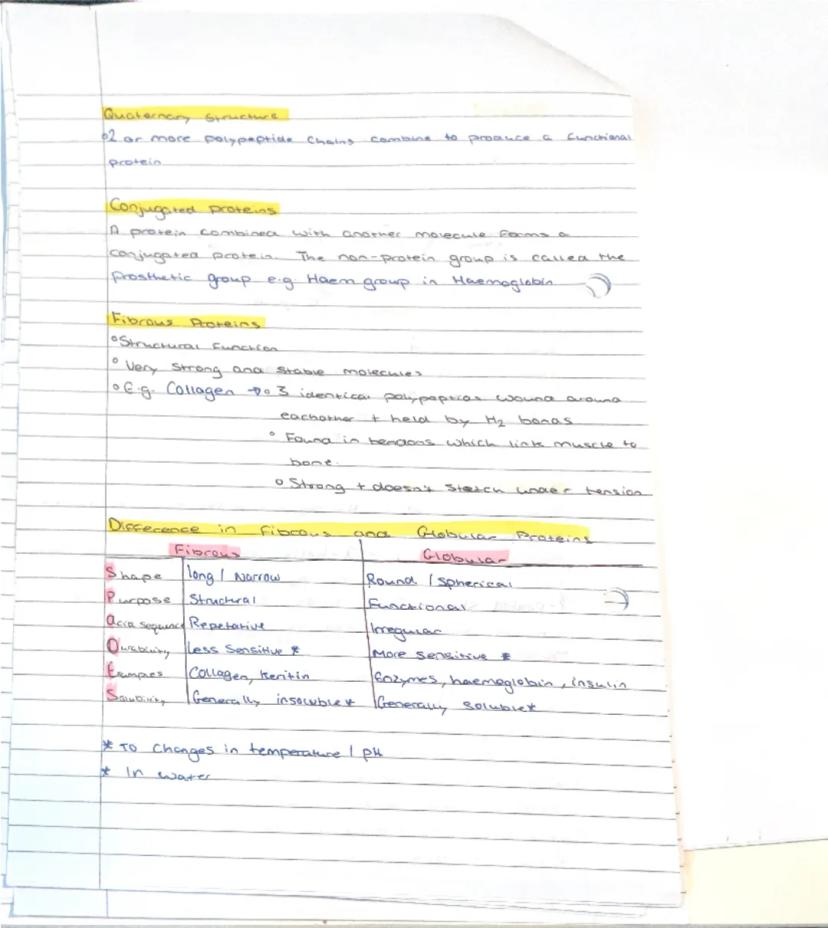 Quaternary Structure
° 2 or more polypeptide chains combine to produce a functional
protein
Conjugated proteins
A protein combined with another molecule forms a
conjugated protein. The non-protein group is called the
prosthetic group e.g. Haem group in Haemoglobin
Fibrous Proteins
° Structural Function
° Very strong and stable molecules
° E.g. Collagen → ° 3 identical polypeptides wound around
eachother + held by H2 bonds
° Found in tendons which link muscle to
bone.
° Strong + doesn't stretch under tension
Difference in Fibrous and Globular Proteins
Fibrous Globular
Shape long / Narrow Round / spherical
Purpose Structural Functional
Acid sequence Repetative Irregular
Durability Less Sensitive * More sensitive *
Examples Collagen, Keritin Enzymes, haemoglobin, insulin
Solubility Generally insoluble* Generally soluble*
* To changes in temperature / pH
* In water